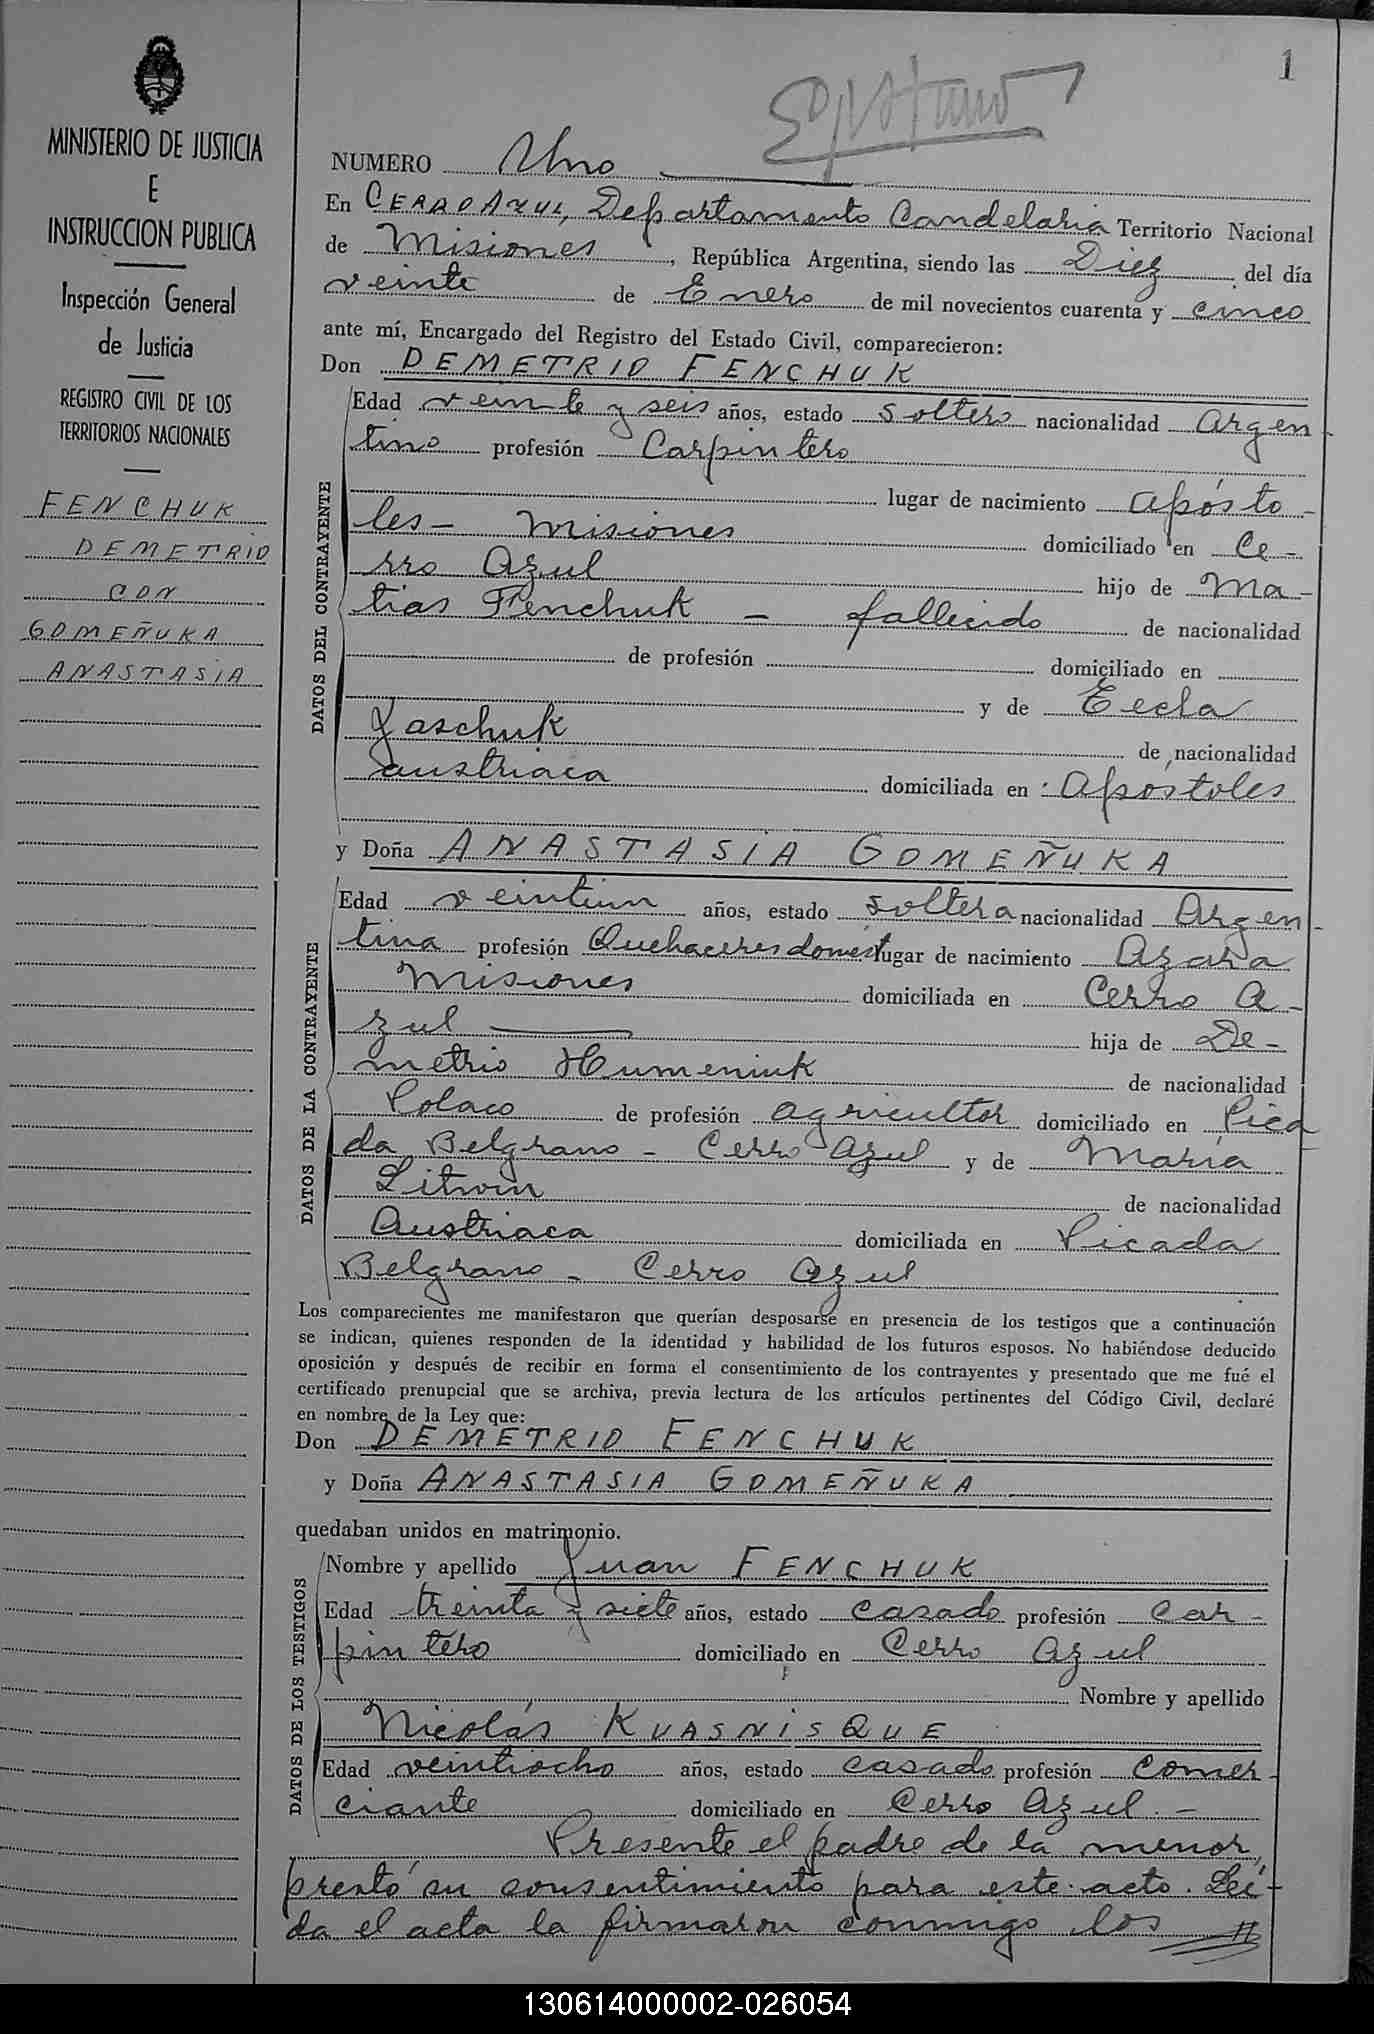 1
MINISTERIO DE JUSTICIA
E
INSTRUCCION PUBLICA
Inspección General
de Justicia
REGISTRO CIVIL DE LOS
TERRITORIOS NACIONALES
FENCHUK
DEMETRIO
CON
GOMEÑUKA
ANASTASIA
NUMERO Uno
En CERRO AZUL, Departamento Candelaria Territorio Nacional
de Misiones, República Argentina, siendo las Diez del día
veinte de Enero de mil novecientos cuarenta y cinco
ante mí, Encargado del Registro del Estado Civil, comparecieron:
Don DEMETRIO FENCHUK
DATOS DEL CONTRAYENTE
Edad veinte y seis años, estado soltero nacionalidad Argen
tino profesión Carpintero
lugar de nacimiento Apósto-
les - Misiones domiciliado en Ce-
rro Azul hijo de Ma-
tias Fenchuk - fallecido de nacionalidad
de profesión domiciliado en
y de Tecla
Jaschuk de nacionalidad
austriaca domiciliada en: Apostoles
y Doña ANASTASIA GOMEÑUKA
DATOS DE LA CONTRAYENTE
Edad veintiun años, estado soltera nacionalidad Argen-
tina profesión Quehaceres domést lugar de nacimiento Azara
Misiones domiciliada en Cerro A-
zul hija de De-
metrio Humeniuk de nacionalidad
Polaco de profesión agricultor domiciliado en Pica
da Belgrano - Cerro Azul y de María
Litwin de nacionalidad
Austriaca domiciliada en Picada
Belgrano - Cerro Azul
Los comparecientes me manifestaron que querían desposarse en presencia de los testigos que a continuación
se indican, quienes responden de la identidad y habilidad de los futuros esposos. No habiéndose deducido
oposición y después de recibir en forma el consentimiento de los contrayentes y presentado que me fué el
certificado prenupcial que se archiva, previa lectura de los artículos pertinentes del Código Civil, declaré
en nombre de la Ley que:
Don DEMETRIO FENCHUK
y Doña ANASTASIA GOMEÑUKA
quedaban unidos en matrimonio.
DATOS DE LOS TESTIGOS
Nombre y apellido Juan FENCHUK
Edad treinta y siete años, estado casado profesión car-
pintero domiciliado en Cerro Azul
Nombre y apellido
Nicolás KUASNISQUE
Edad veintiocho años, estado casado profesión comer-
ciante domiciliado en Cerro Azul. -
Presente el padre de la menor,
prestó su consentimiento para este acto. Leí-
da el acta la firmaron conmigo los //
130614000002-026054